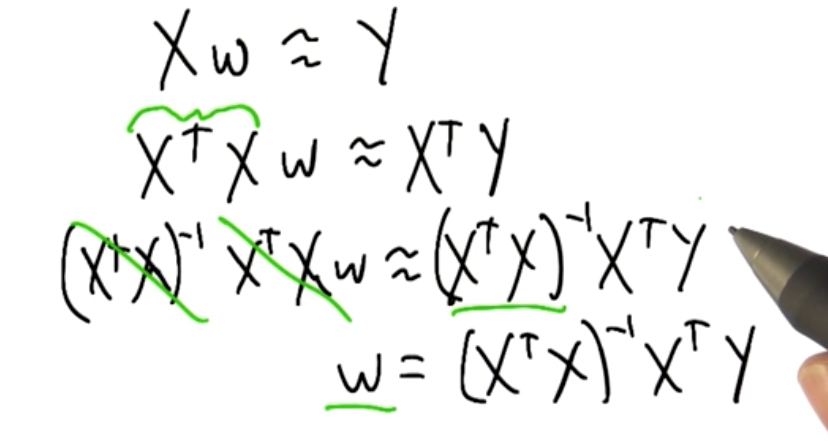 Xw ≈ Y
XᵀXw ≈ XᵀY
(XᵀX)⁻¹ XᵀXw ≈ (XᵀX)⁻¹XᵀY
w = (XᵀX)⁻¹XᵀY